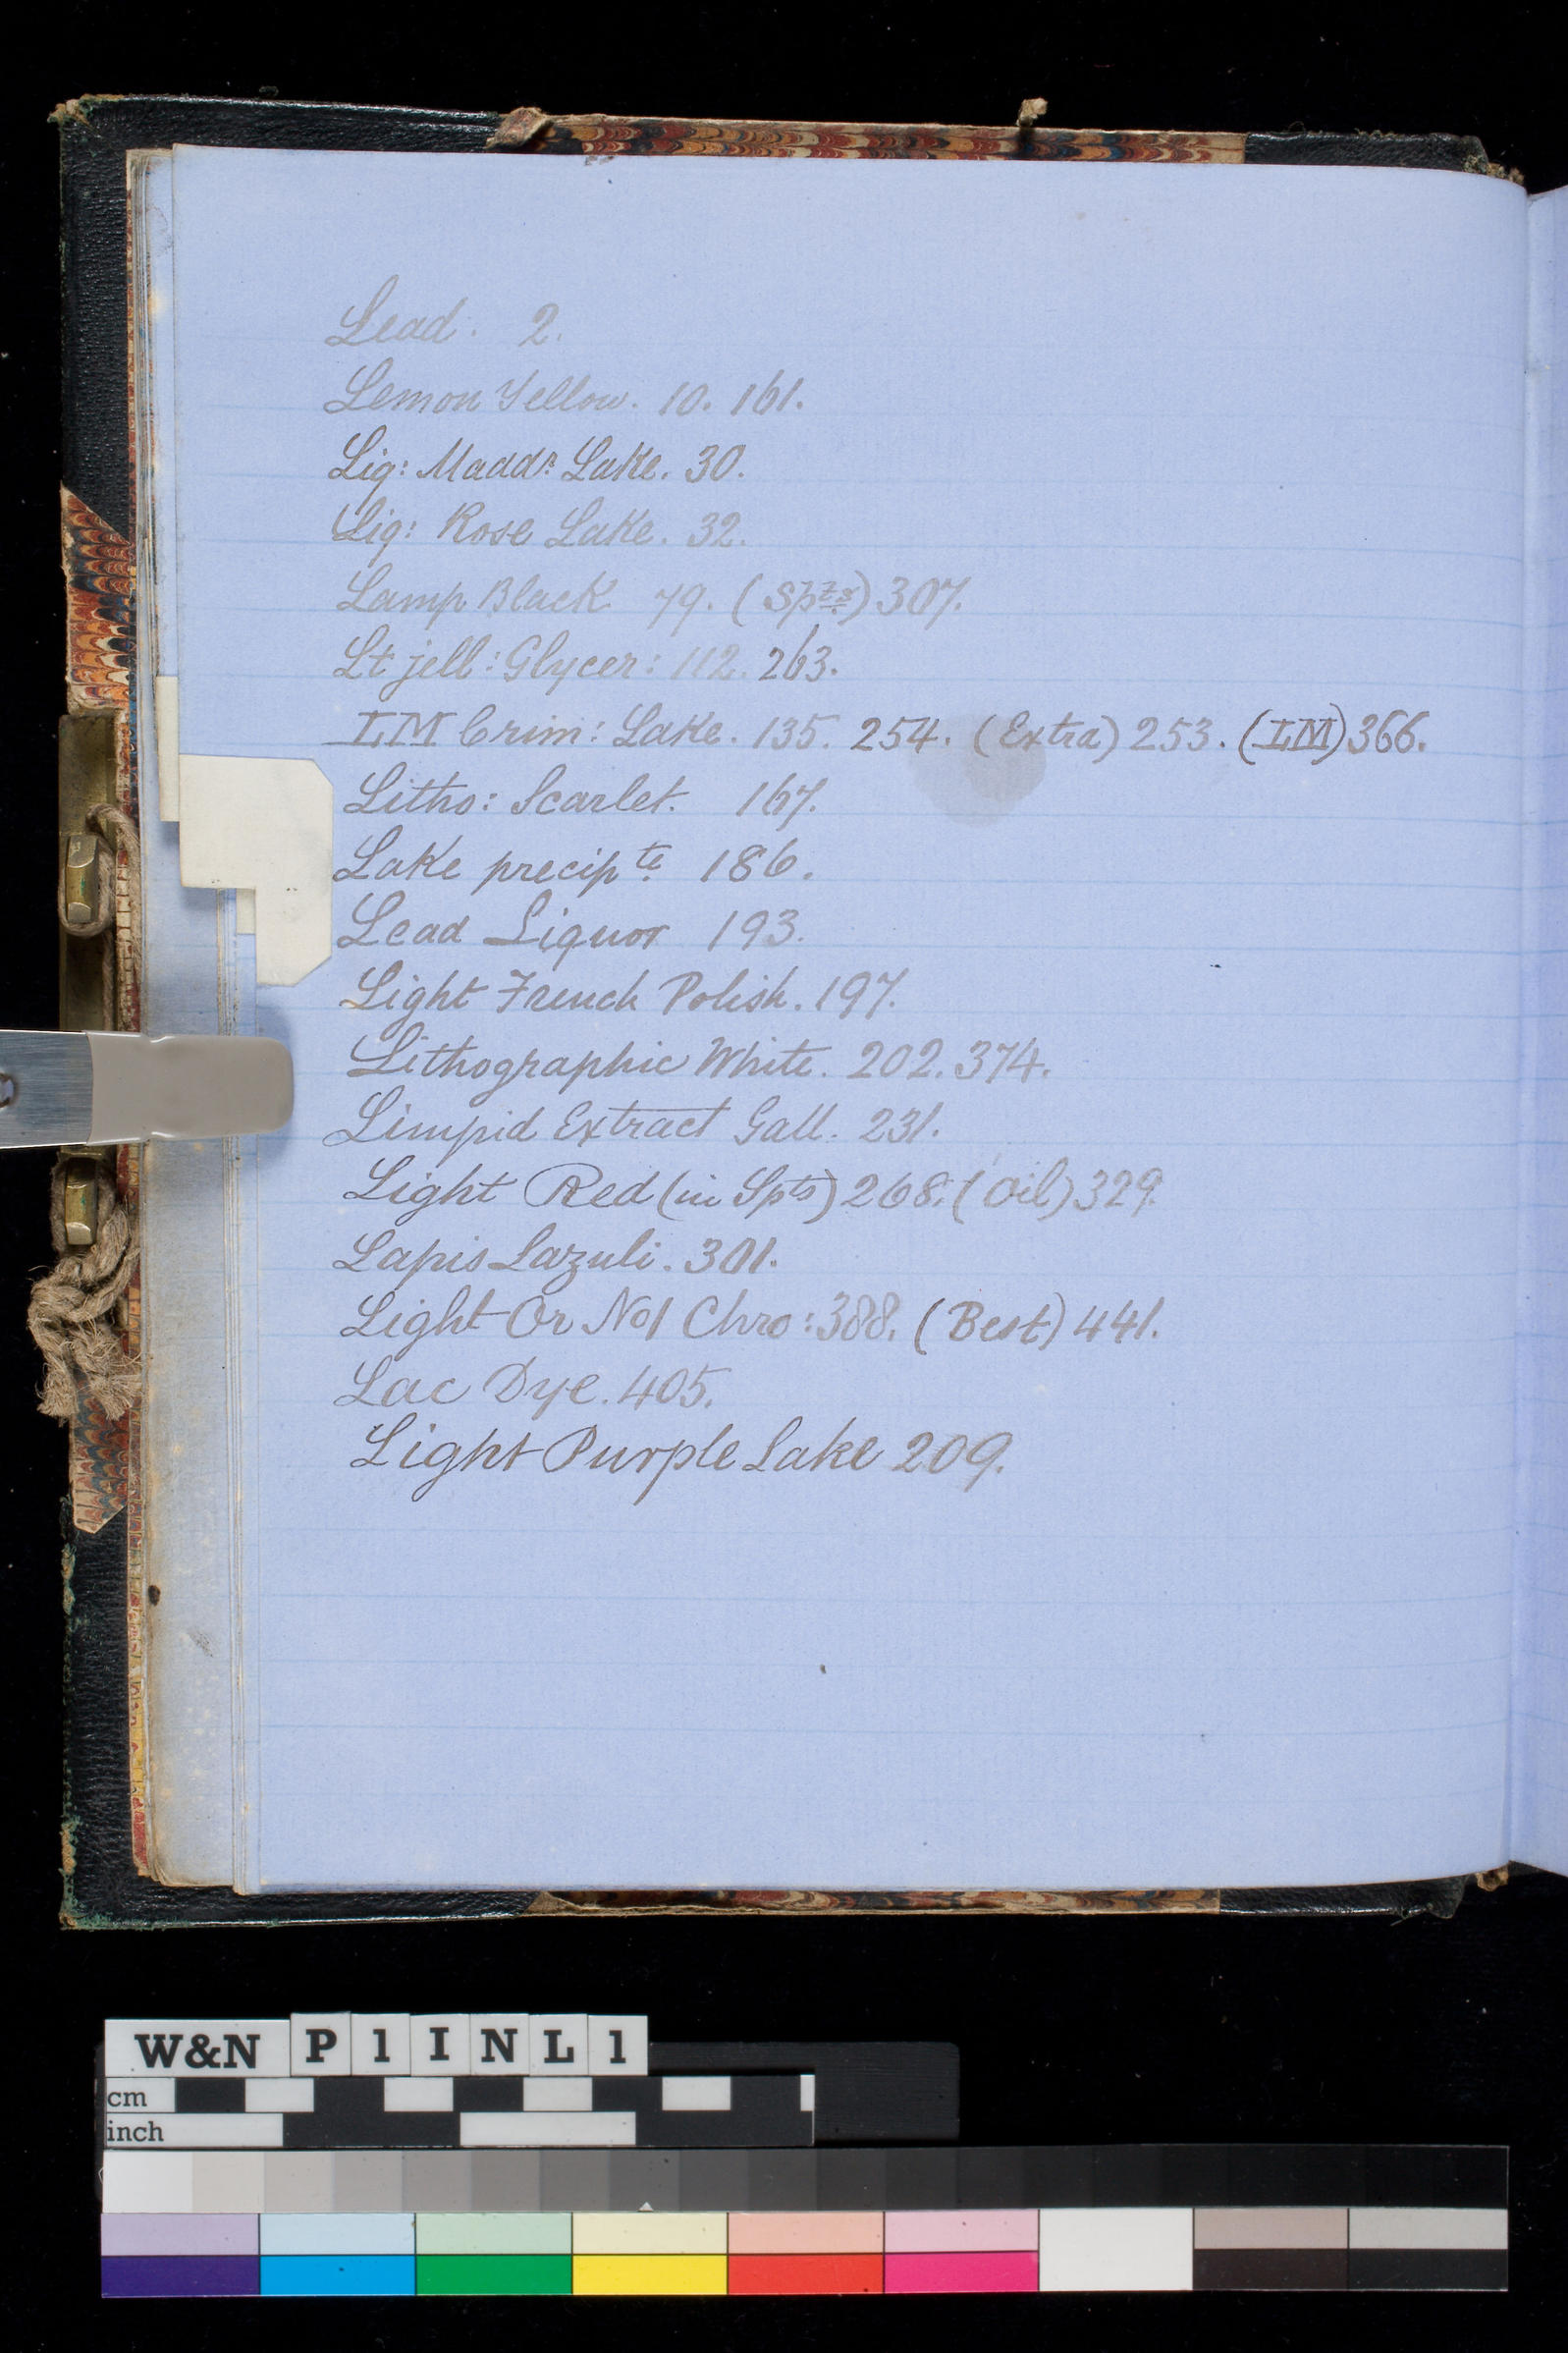 Lead. 2.
Lemon Yellow. 10. 161.
Liq: Madd^r. Lake. 30.
Liq: Rose Lake. 32.
Lamp Black 79. (Sp^ts) 307.
Lt jell: Glycer: 112. 263.
LM Crim: Lake. 135. 254. (Extra) 253. (LM) 366.
Litho: Scarlet. 167.
Lake precip^te. 186.
Lead Liquor 193.
Light French Polish. 197.
Lithographic White. 202. 374.
Limpid Extract Gall. 231.
Light Red (in Sp^ts) 268. (Oil) 329.
Lapis Lazuli. 301.
Light Or No1 Chro: 388. (Best) 441.
Lac Dye. 405.
Light Purple Lake 209.
W&N P 1 I N L 1
cm
inch